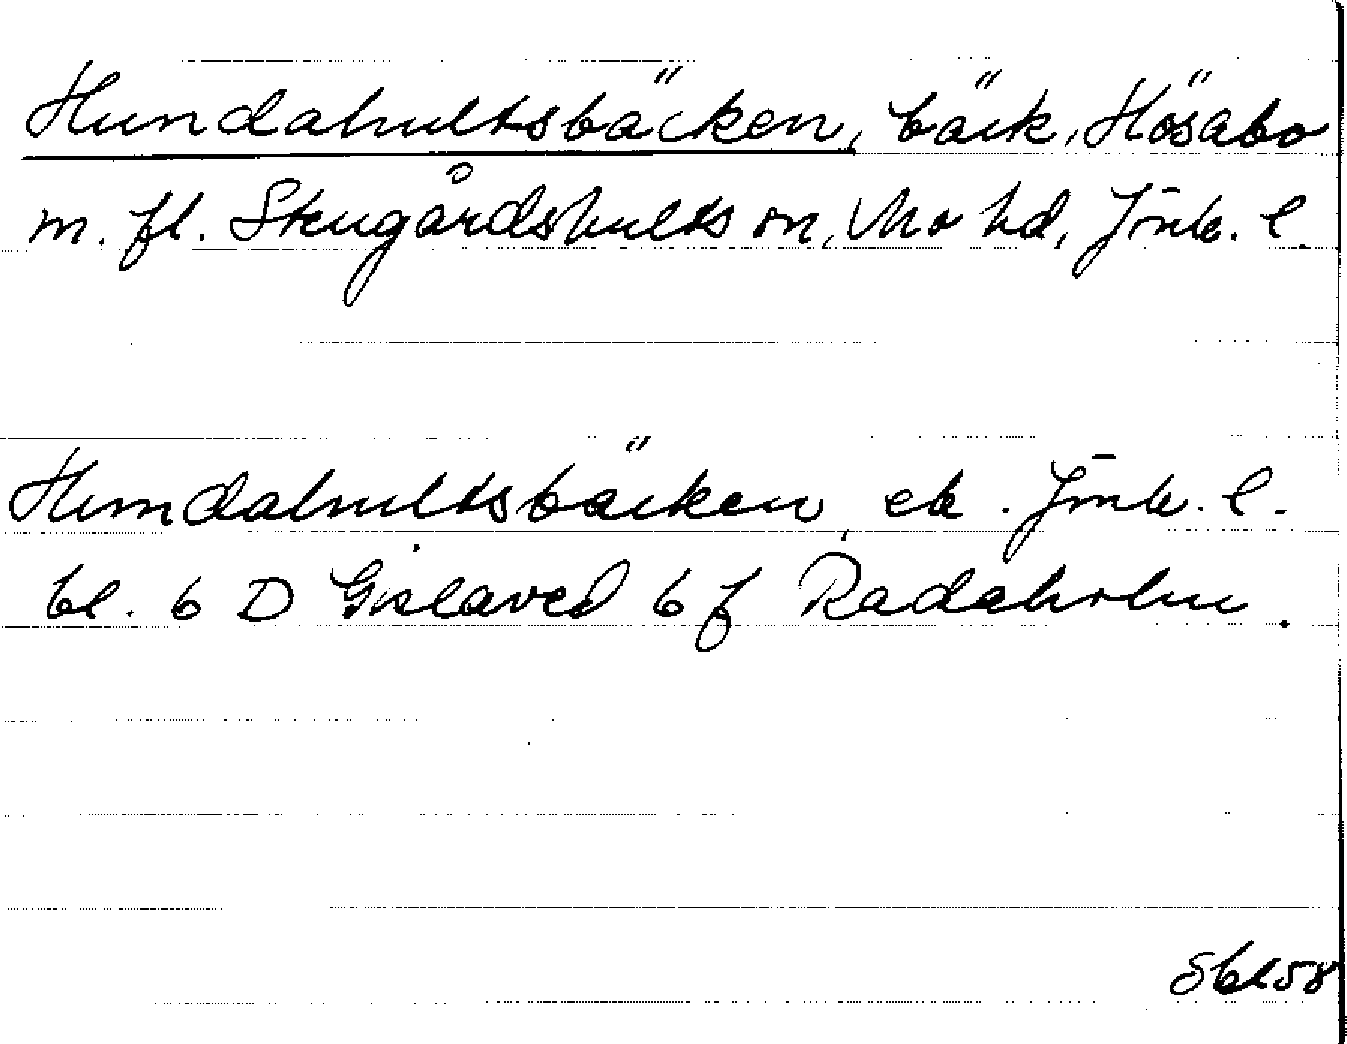 Hundahultsbäcken, bäck, Hösabo
m. fl. Stengårdshults sn, Mo hd, Jönk. l.
Hundahultsbäcken, ek. Jönk. l.
bl. 6 D Gislaved 6 f Radaholm.